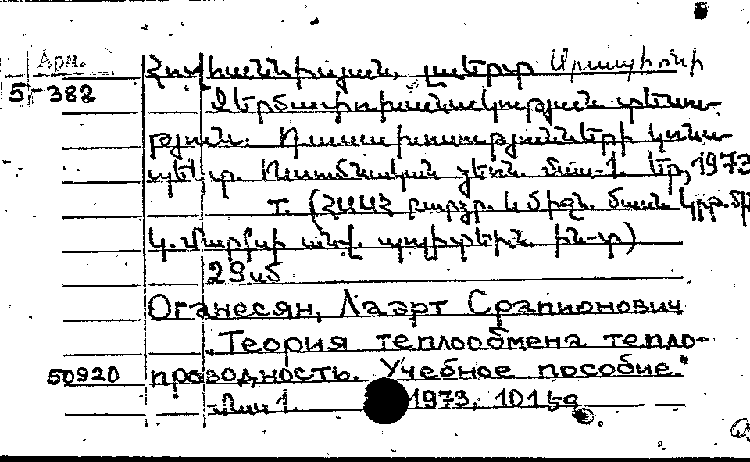 Арм.
5-382
Հովհաննիսյան, Լաերտ Սրապիոնի
Ջերմափոխանակության տեսու-
թյուն. Դասախոսությունների կոնս-
պեկտ. Ուսումնական ձեռն. մաս-1. Եր, 1973
տ. (ՀՍՍՀ բարձր. և միջն. մասն. կրթ. մ
Կ. Մարքսի անվ. պոլիտեխն. ին-տ)
29 սմ
Оганесян, Лаэрт Срапионович
"Теория теплообмена тепло-
50920 проводность. Учебное пособие"
Մաս 1. 1973, 101 էջ.